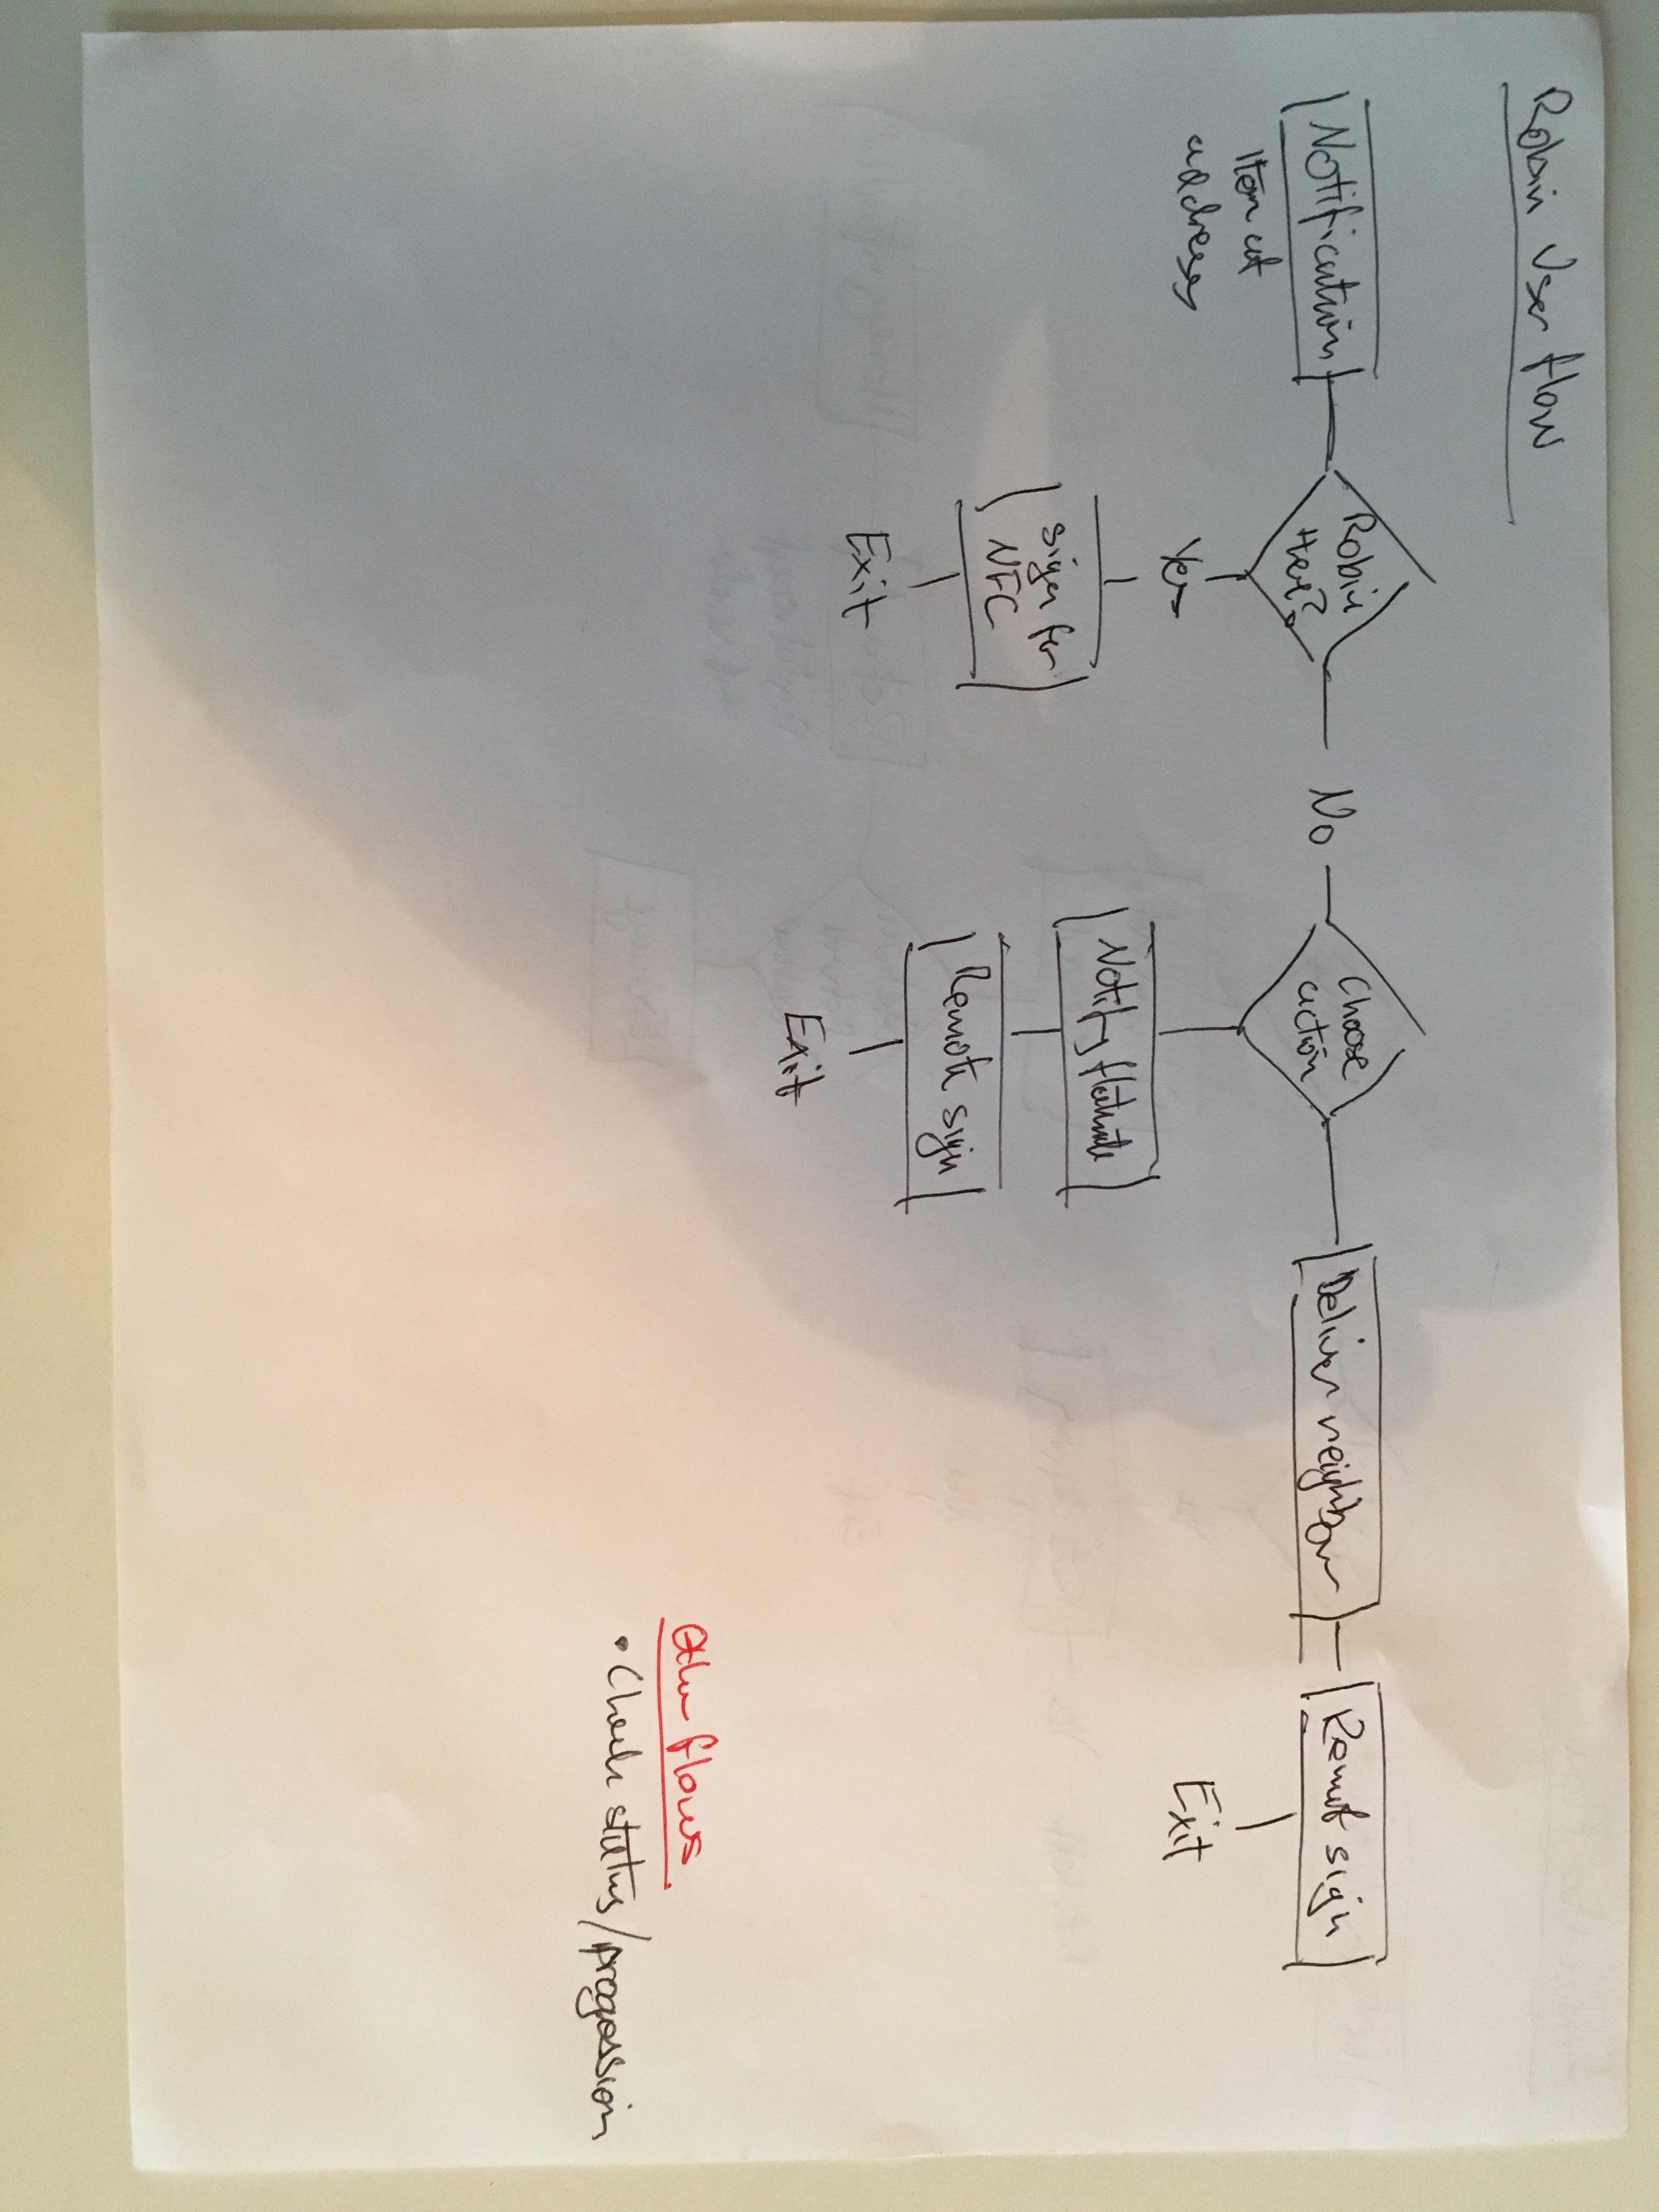 Robin User flow
Notification
Item at
address
Robin
Here?
Yes
sign for
NFC
Exit
No
Choose
action
Notify flatmate
Remote sign
Exit
Deliver neighbor
Remot sign
Exit
Other flows
• Check status/progossion